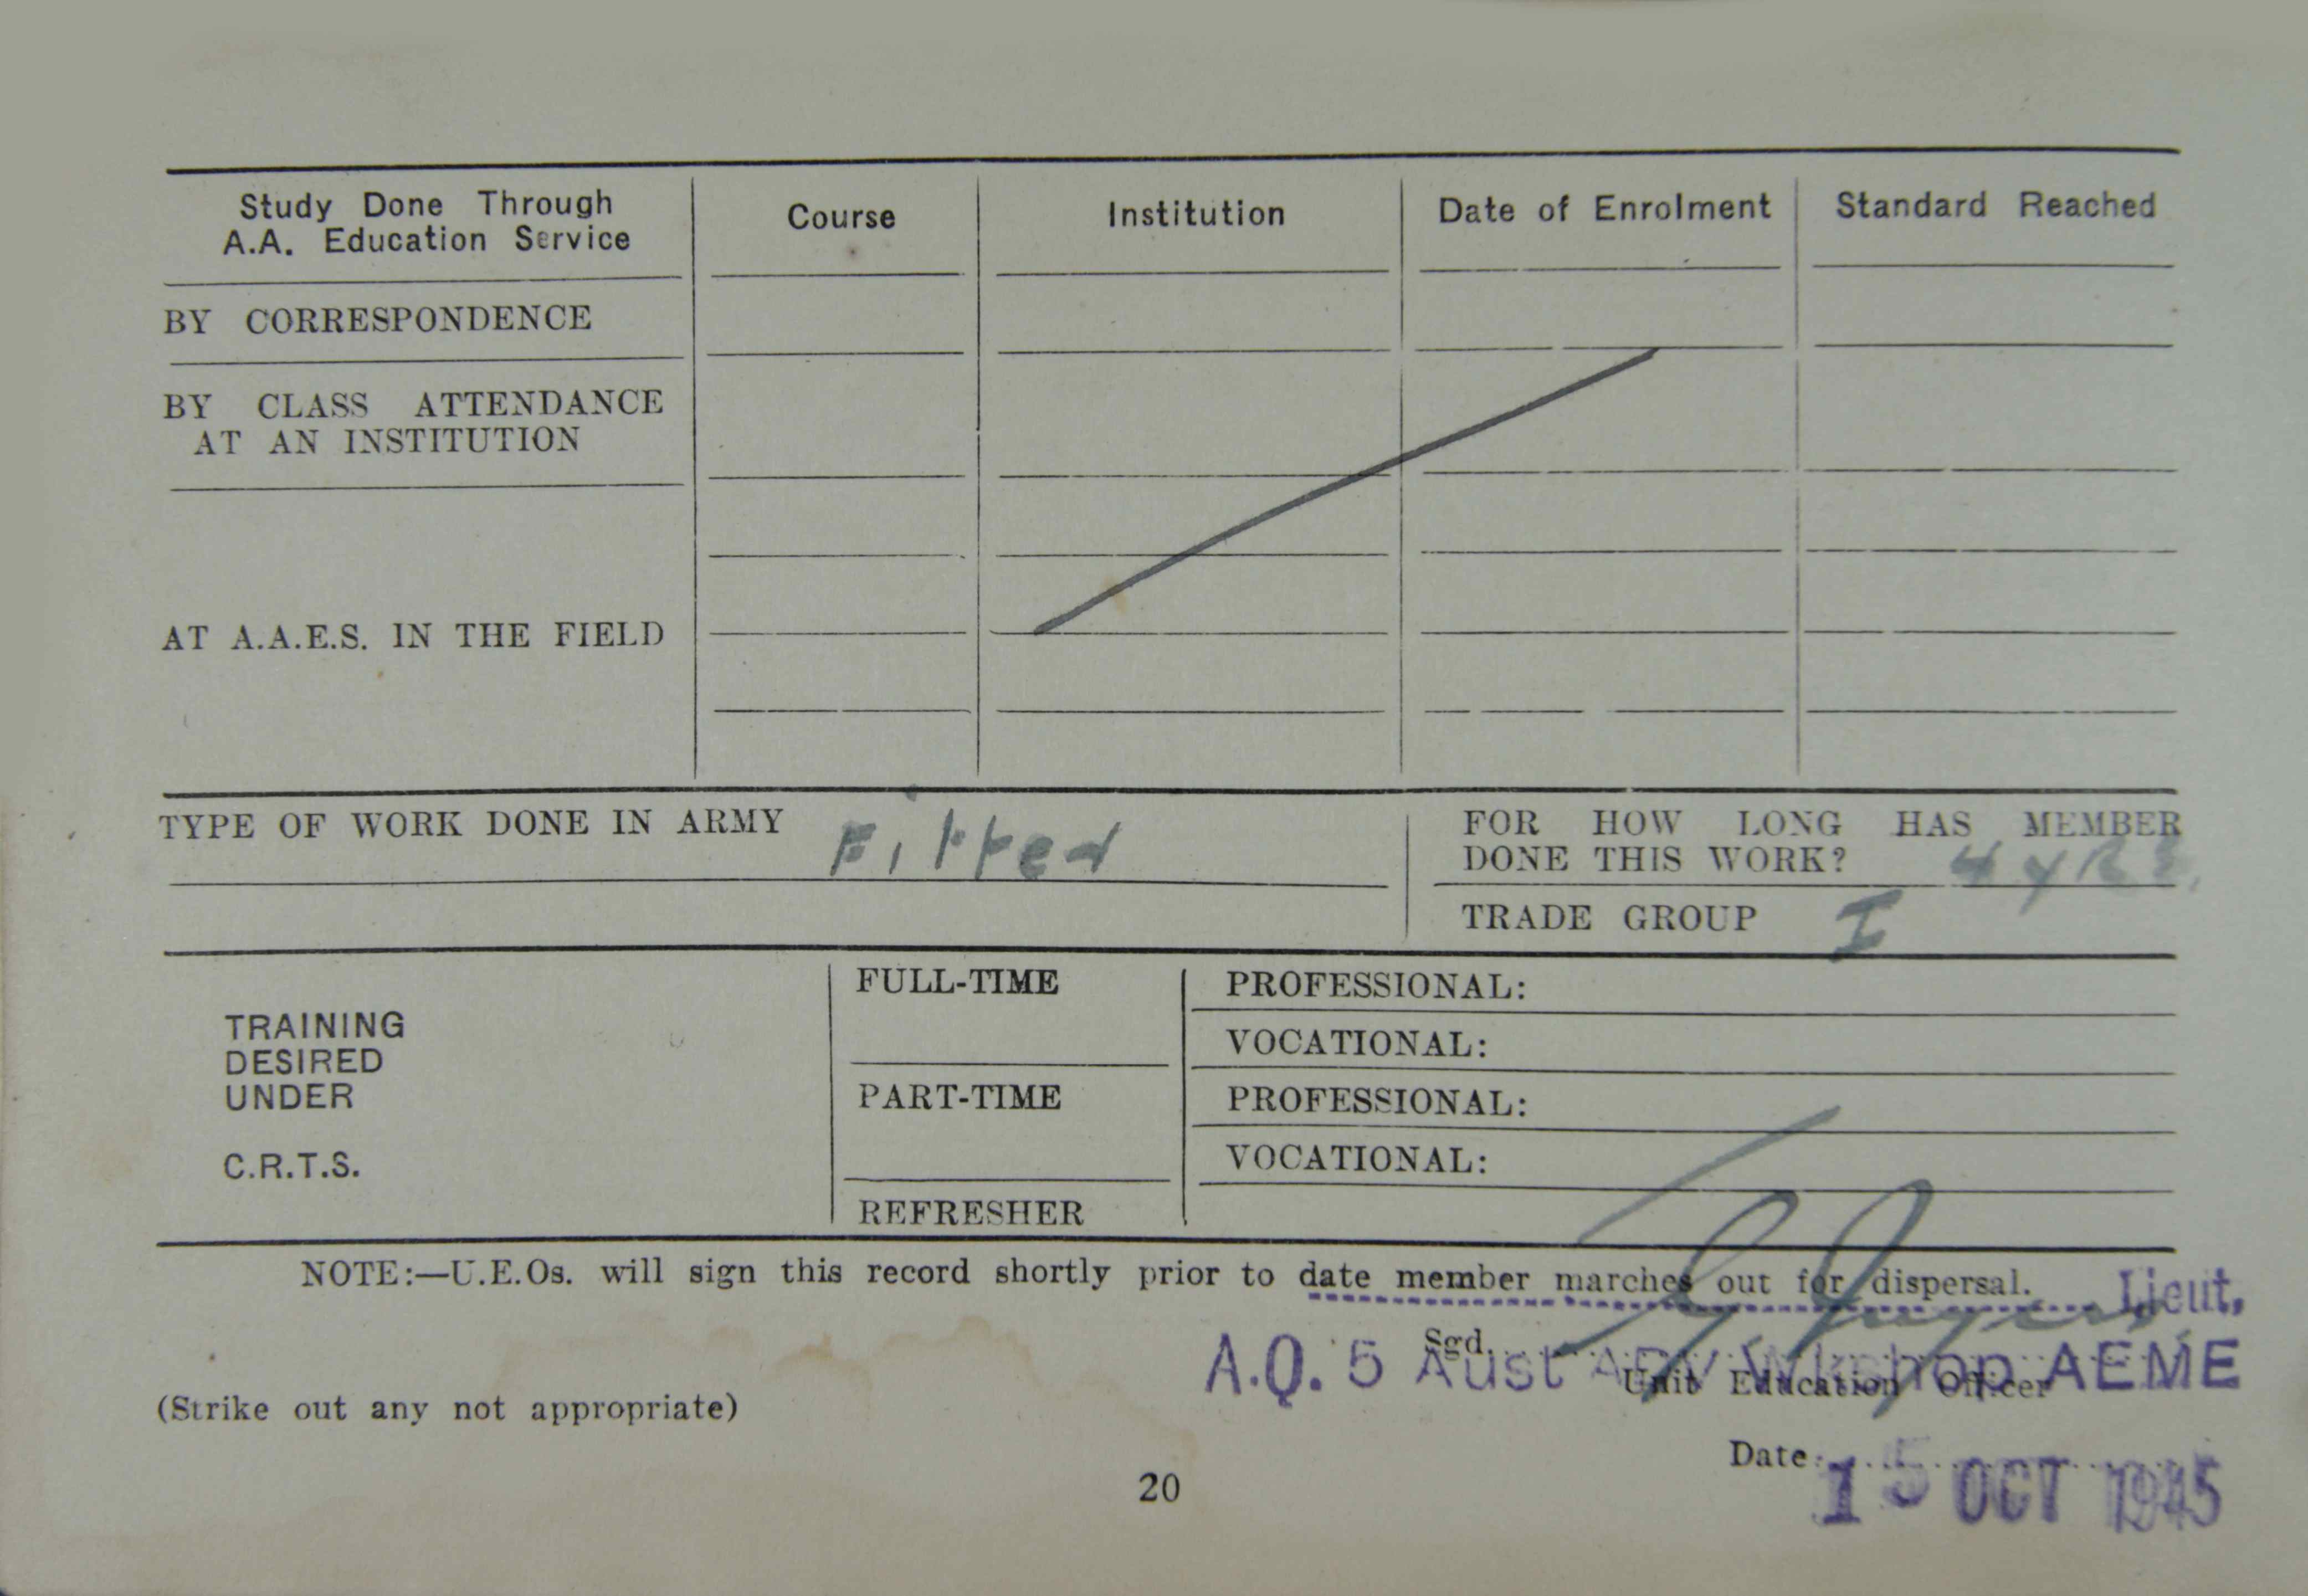 Study Done Through
A.A. Education Service
Course
Institution
Date of Enrolment
Standard Reached
BY CORRESPONDENCE
BY CLASS ATTENDANCE
AT AN INSTITUTION
AT A.A.E.S. IN THE FIELD
TYPE OF WORK DONE IN ARMY Fitter
FOR HOW LONG HAS MEMBER
DONE THIS WORK? 4 YRS.
TRADE GROUP I
TRAINING
DESIRED
UNDER
C.R.T.S.
FULL-TIME
PROFESSIONAL:
VOCATIONAL:
PART-TIME
PROFESSIONAL:
VOCATIONAL:
REFRESHER
NOTE:—U.E.Os. will sign this record shortly prior to date member marches out for dispersal.
Lieut,
Sgd.
A.Q. 5 Aust AFV Wkshop AEME
Unit Education Officer
(Strike out any not appropriate)
Date 15 OCT 1945
20